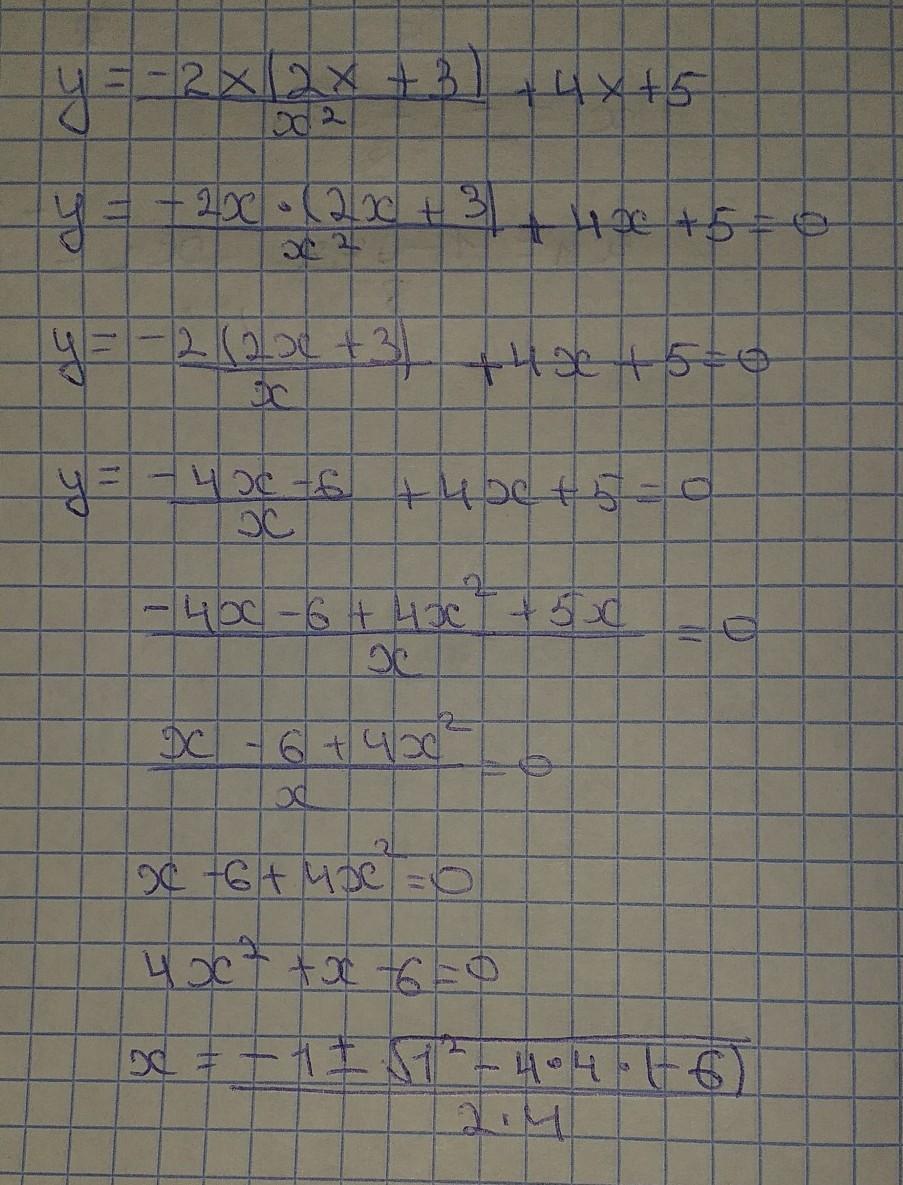 y = -2x(2x + 3) / x² + 4x + 5
y = -2x · (2x + 3) / x² + 4x + 5 = 0
y = -2(2x + 3) / x + 4x + 5 = 0
y = -4x - 6 / x + 4x + 5 = 0
-4x - 6 + 4x² + 5x / x = 0
x - 6 + 4x² / x = 0
x - 6 + 4x² = 0
4x² + x - 6 = 0
x = -1 ± √1² - 4·4·(-6) / 2·4